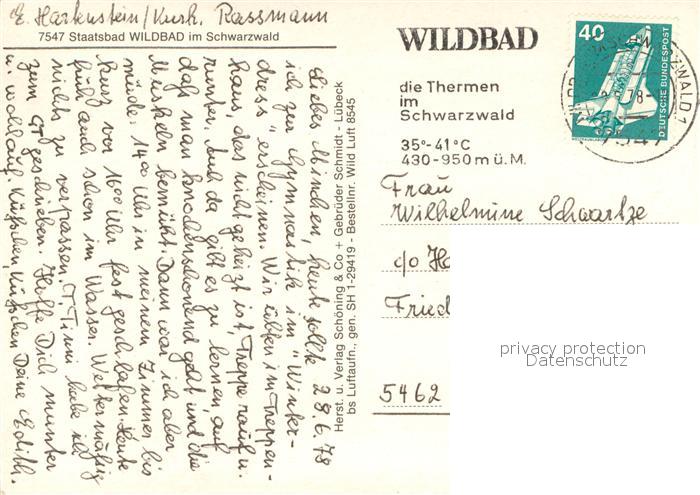 E. Harkenstein/Kurh. Rassmann
7547 Staatsbad WILDBAD im Schwarzwald
28.6.78
Liebes Minchen, heute sollte
ich zur Gymnastik im "Winter-
dress" erscheinen. Wir übten im Treppen-
haus, das nicht geheizt ist, Treppe rauf u.
runter. Auch da gibt es zu lernen, auf
daß man knochenschonend geht und die
Muskeln bemüht. Dann war ich aber
müde: 14°° Uhr in meinem Zimmer bis
kurz vor 16°° Uhr fest geschlafen. Heute
früh auch schon im Wasser. Wettermäßig
nichts zu verpassen. T. Tinni habe ich
zum GT geschrieben. Hoffe Dich munter
u. wohlauf. Küßchen, Küßchen Deine Edith.
Herst. u. Verlag Schöning & Co + Gebrüder Schmidt - Lübeck
bs Luftaufn., gen. SH 1-29419 - Bestellnr. Wild Luft 8545
WILDBAD
die Thermen
im
Schwarzwald
35°-41°C
430-950 m ü. M.
40
DEUTSCHE BUNDESPOST
Frau
Wilhelmine Schwartze
c/o
Fried
5462
privacy protection
Datenschutz